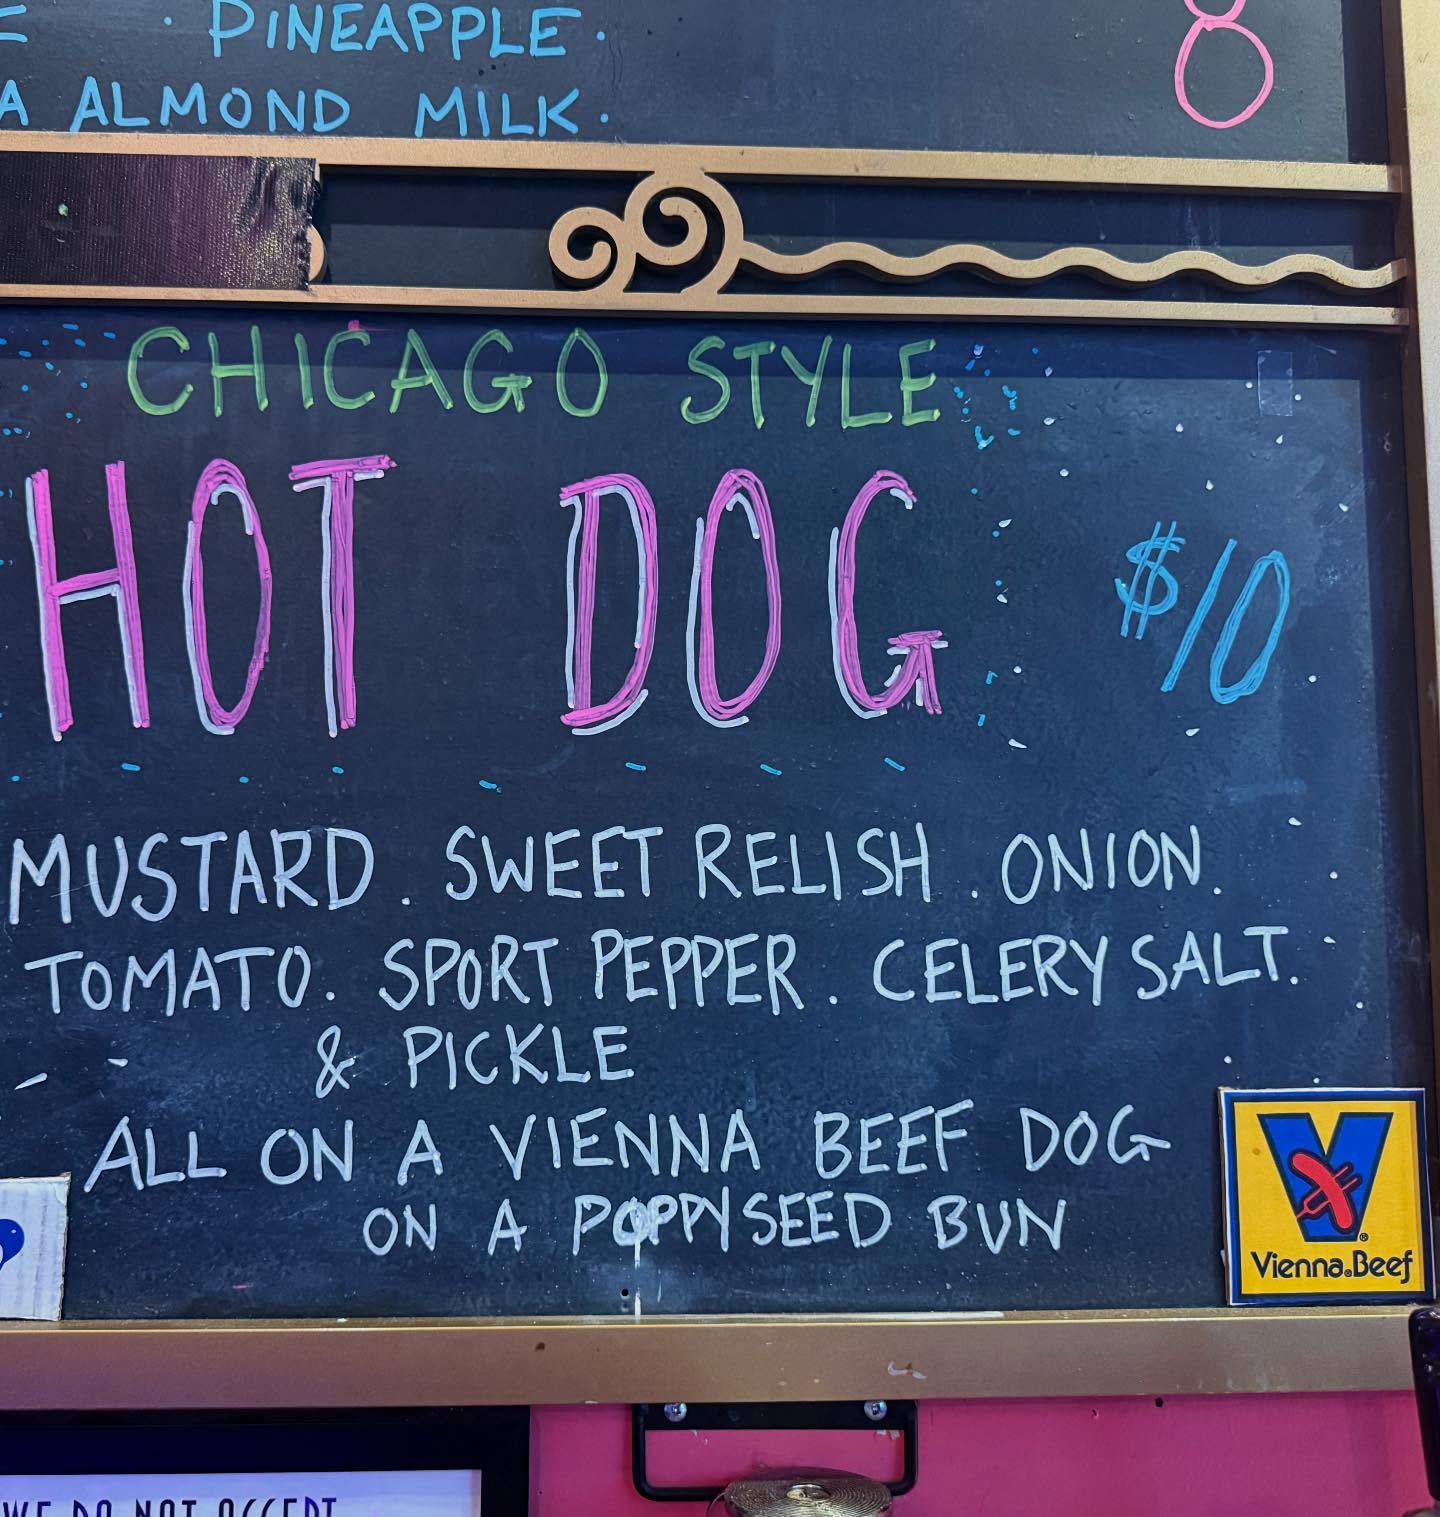 PINEAPPLE .
ALMOND MILK .
8
CHICAGO STYLE
HOT DOG
$10
MUSTARD . SWEET RELISH . ONION .
TOMATO . SPORT PEPPER . CELERY SALT .
& PICKLE
ALL ON A VIENNA BEEF DOG
ON A POPPYSEED BUN
V
®
Vienna®Beef
WE DO NOT ACCEPT